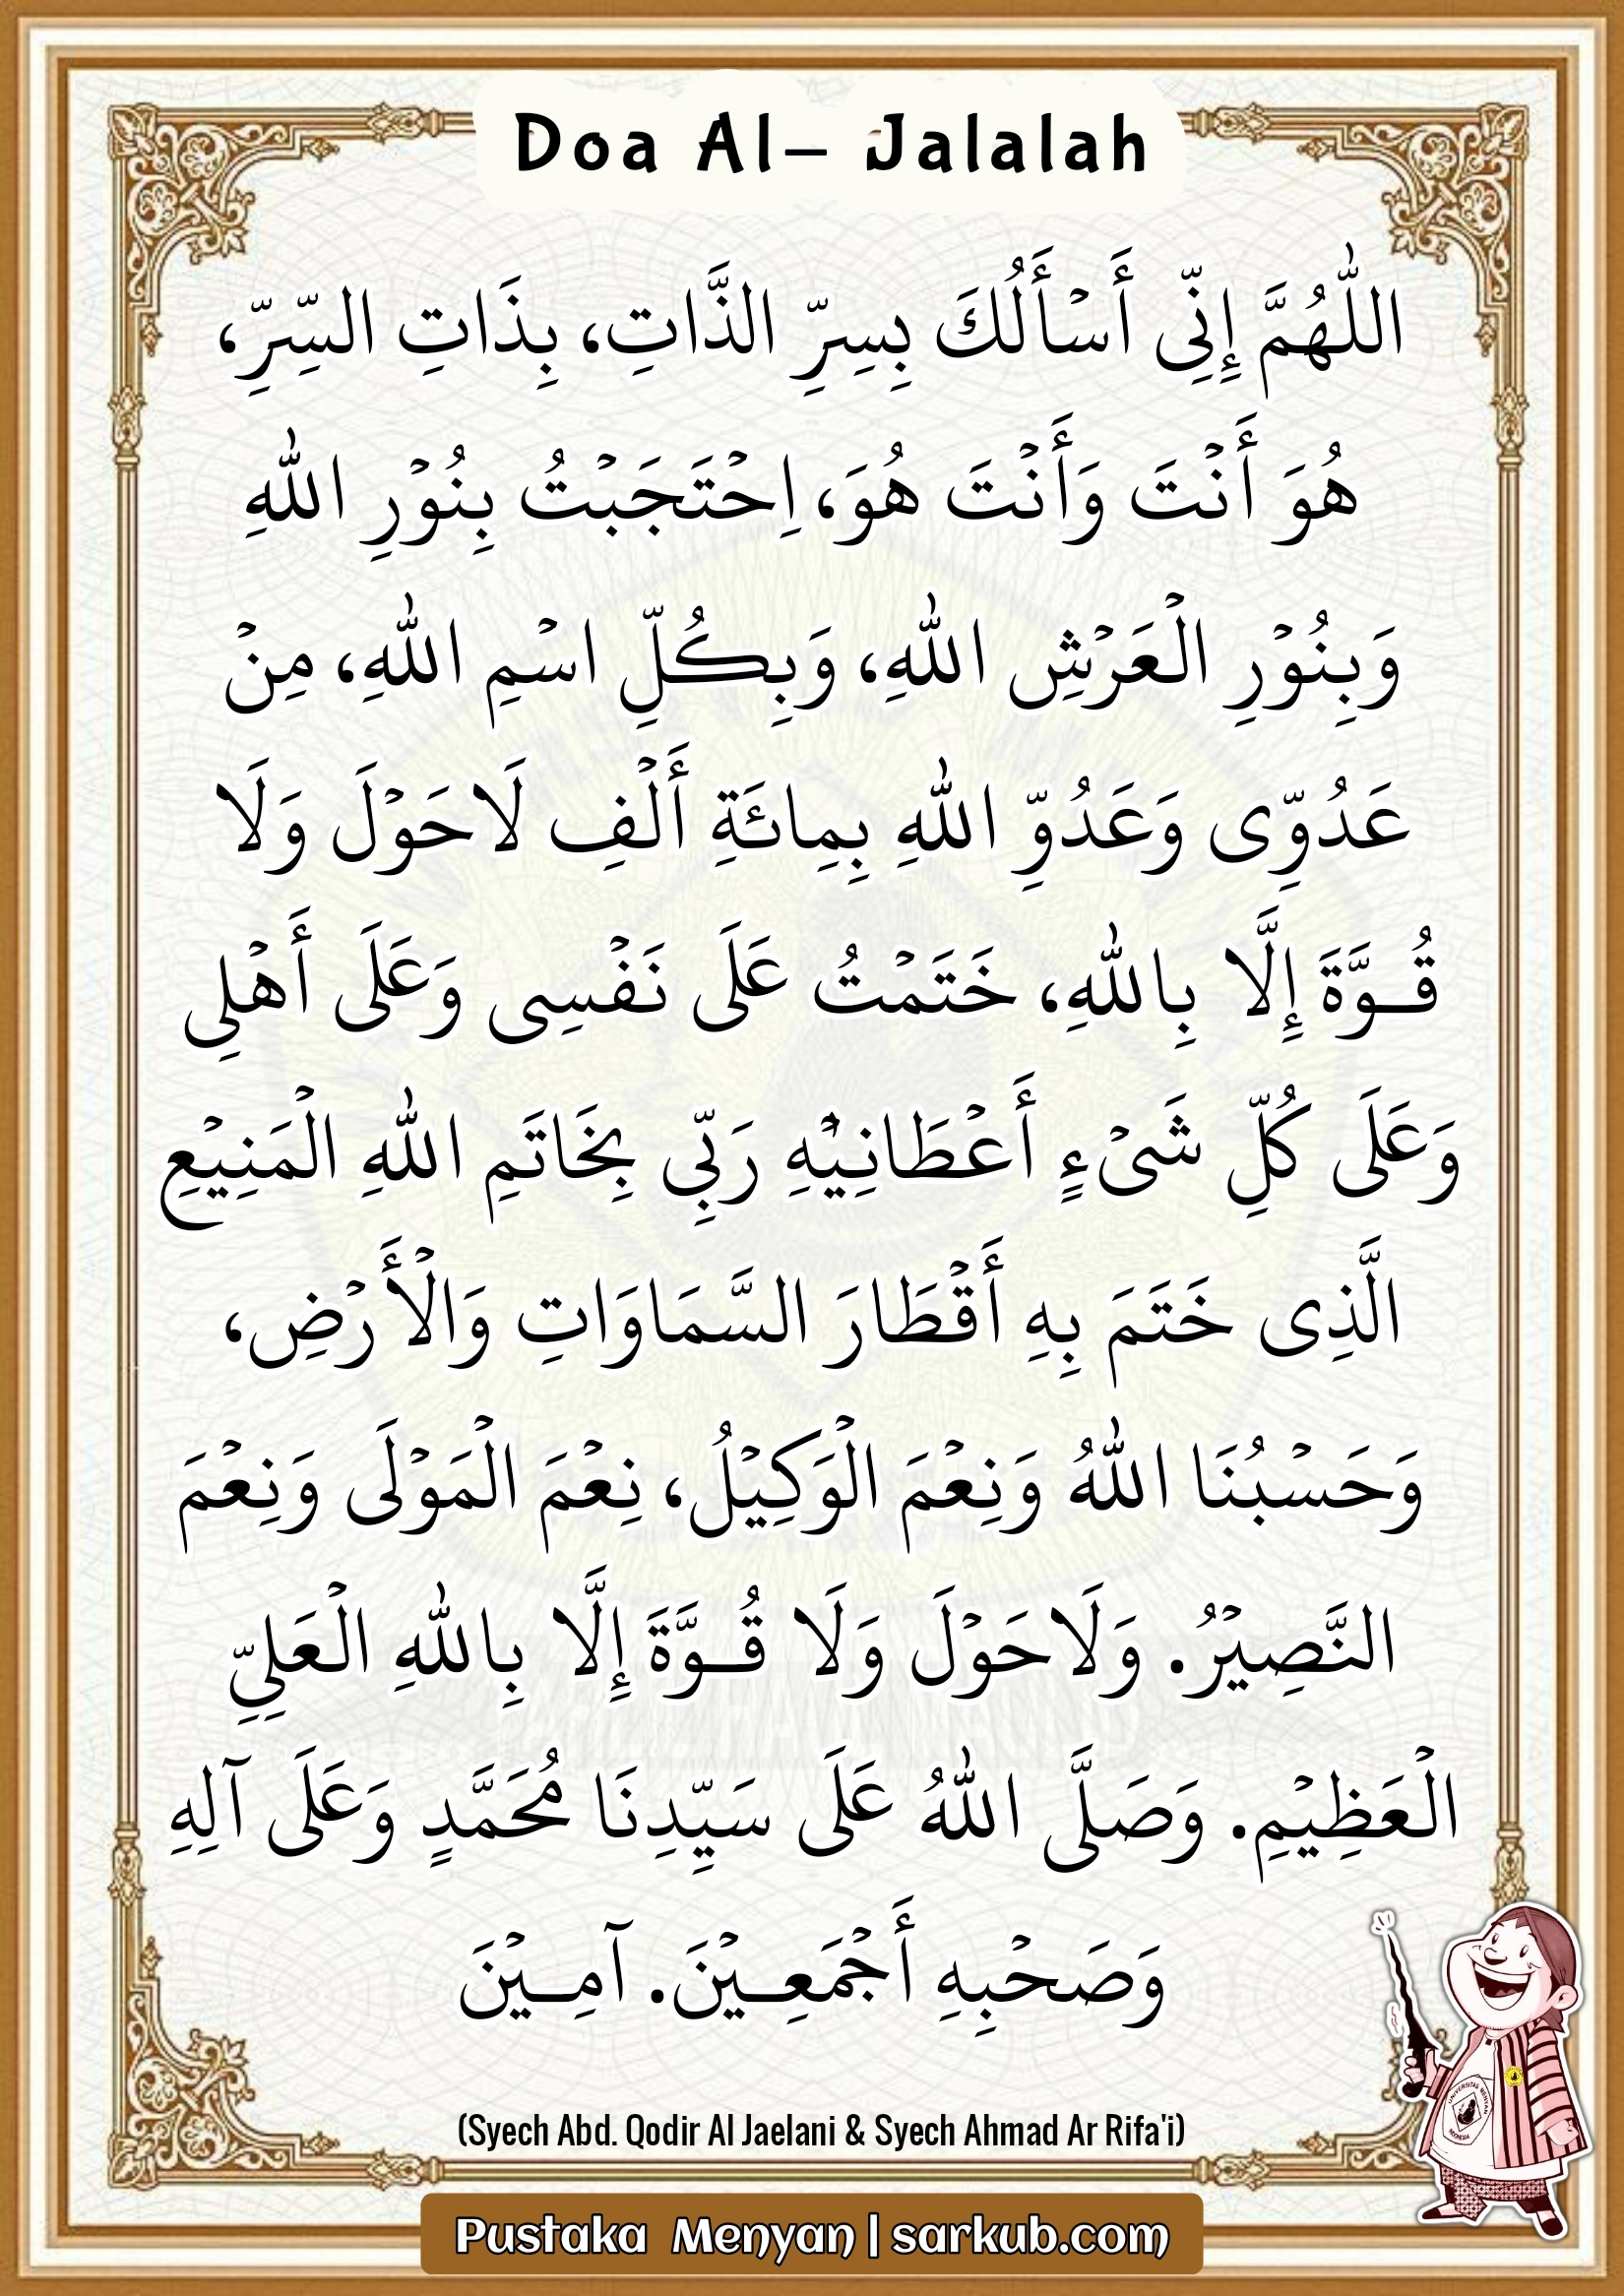 Doa Al- Jalalah
اللّٰهُمَّ إِنِّى أَسْأَلُكَ بِسِرِّ الذَّاتِ، بِذَاتِ السِّرِّ،
هُوَ أَنْتَ وَأَنْتَ هُوَ، اِحْتَجَبْتُ بِنُوْرِ اللهِ
وَبِنُوْرِ الْعَرْشِ اللهِ، وَبِكُلِّ اسْمِ اللهِ، مِنْ
عَدُوِّى وَعَدُوِّ اللهِ بِمِائَةِ أَلْفِ لَاحَوْلَ وَلَا
قُـوَّةَ إِلَّا بِاللهِ، خَتَمْتُ عَلَى نَفْسِى وَعَلَى أَهْلِى
وَعَلَى كُلِّ شَىْءٍ أَعْطَانِيْهِ رَبِّي بِخَاتَمِ اللهِ الْمَنِيْعِ
الَّذِى خَتَمَ بِهِ أَقْطَارَ السَّمَاوَاتِ وَالْأَرْضِ،
وَحَسْبُنَا اللهُ وَنِعْمَ الْوَكِيْلُ، نِعْمَ الْمَوْلَى وَنِعْمَ
النَّصِيْرُ. وَلَاحَوْلَ وَلَا قُـوَّةَ إِلَّا بِاللهِ الْعَلِيِّ
الْعَظِيْمِ. وَصَلَّى اللهُ عَلَى سَيِّدِنَا مُحَمَّدٍ وَعَلَى آلِهِ
وَصَحْبِهِ أَجْمَعِـيْنَ. آمِـيْنَ
(Syech Abd. Qodir Al Jaelani & Syech Ahmad Ar Rifa'i)
Pustaka Menyan | sarkub.com